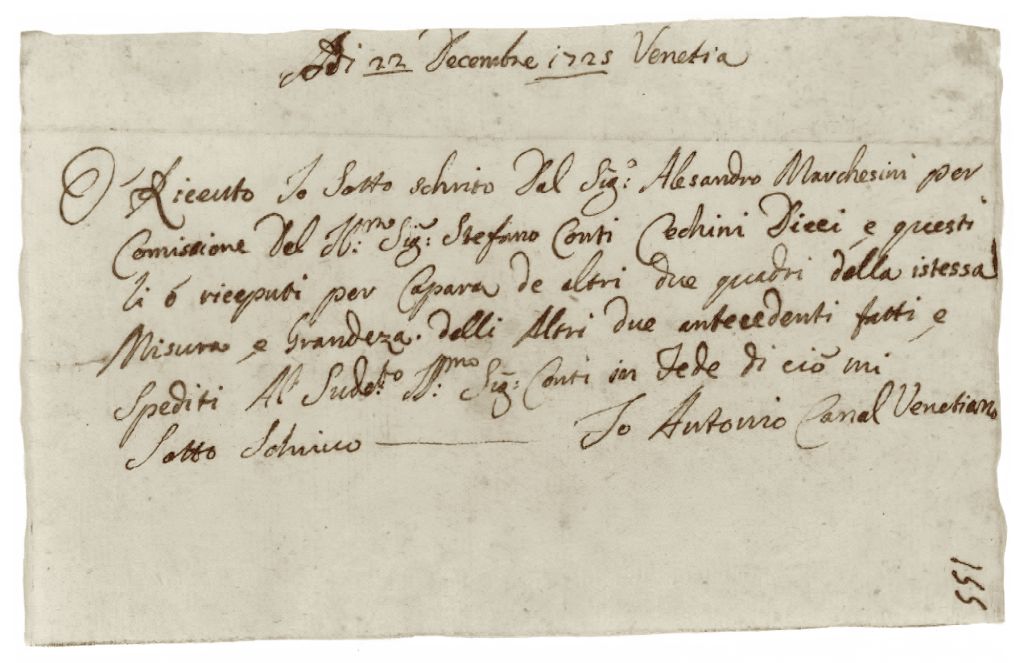 Adi 22 Decembre 1725 Venetia
O Riceuto Io Sotto schrito Dal Sig:º Alesandro Marchesini per
Comissione Del Il:mo Sig:r Stefano Conti Cechini Dieci e questi
li ó riceputi per Capara de altri due quadri della istessa
Misura e Grandeza. delli Altri due antecedenti fatti e
Spediti Al Sude:to Il:mo Sig:r Conti in Fede di ciò mi
Sotto Schrivo Io Antonio Canal Venetiano
155